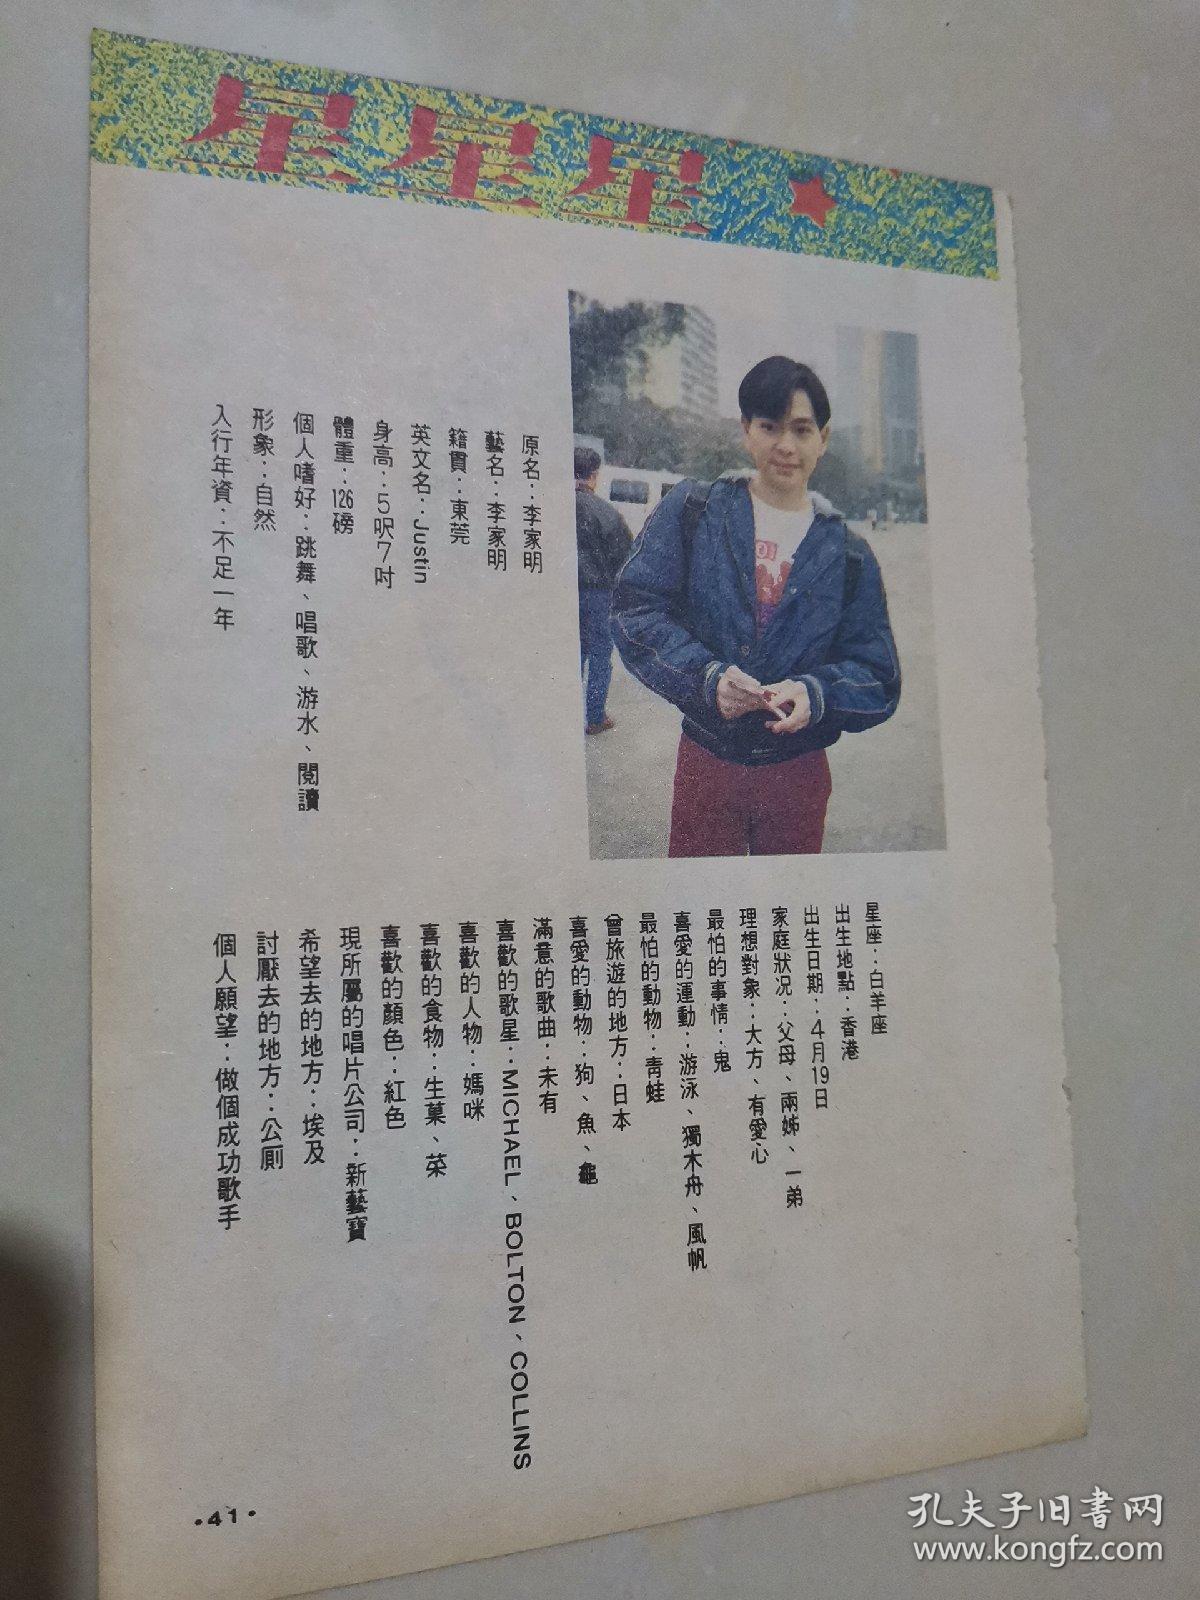 星星星
原名：李家明
藝名：李家明
籍貫：東莞
英文名：Justin
身高：5呎7吋
體重：126磅
個人嗜好：跳舞、唱歌、游水、閱讀
形象：自然
入行年資：不足一年
星座：白羊座
出生地點：香港
出生日期：4月19日
家庭狀況：父母、兩姊、一弟
理想對象：大方、有愛心
最怕的事情：鬼
喜愛的運動：游泳、獨木舟、風帆
最怕的動物：青蛙
曾旅遊的地方：日本
喜愛的動物：狗、魚、龜
滿意的歌曲：未有
喜歡的歌星：MICHAEL、BOLTON、COLLINS
喜歡的人物：媽咪
喜歡的食物：生菓、菜
喜歡的顏色：紅色
現所屬的唱片公司：新藝寶
希望去的地方：埃及
討厭去的地方：公厠
個人願望：做個成功歌手
•41•
孔夫子旧书网
www.kongfz.com